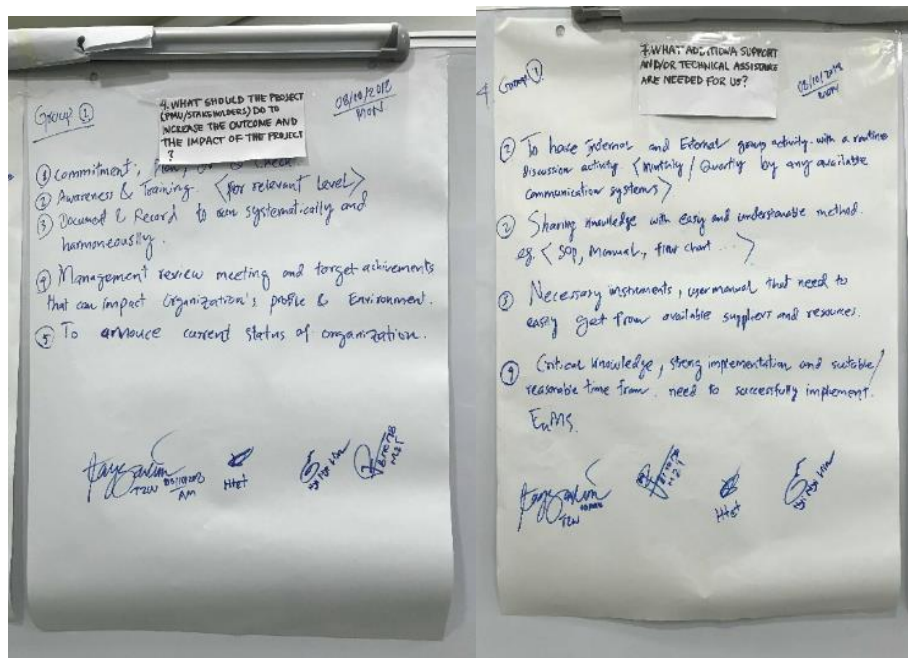 Group ①
4. WHAT SHOULD THE PROJECT
(PMU/STAKEHOLDERS) DO TO
INCREASE THE OUTCOME AND
THE IMPACT OF THE PROJECT
?
08/10/2018
MON
① Commitment,
② Awareness & Training. <for relevant Level>
③ Document & Record to own systematically and
harmoneously.
④ Management review meeting and target achivements
that can impact Organization's profile & Environment.
⑤ To annouce current status of organization.
TZW
AM
Htet
4. Group ①
7. WHAT ADDITIONA SUPPORT
AND/OR TECHNICAL ASSISTANCE
ARE NEEDED FOR US?
08/10/2018
MON
To have Internal and External group activity with a routine
discussion activity <Monthly / Quartly by any available
communication systems>
② Sharing knowledge with easy and understanable method.
eg. < SOP, Manual, flow chart ... >
③ Necessary instruments, user manual that need to
easily get from available suppliers and resources.
④ Critical knowledge, strong implementation and suitable/
reasonable time from need to successfully implement.
EnMS.
TZW
Htet